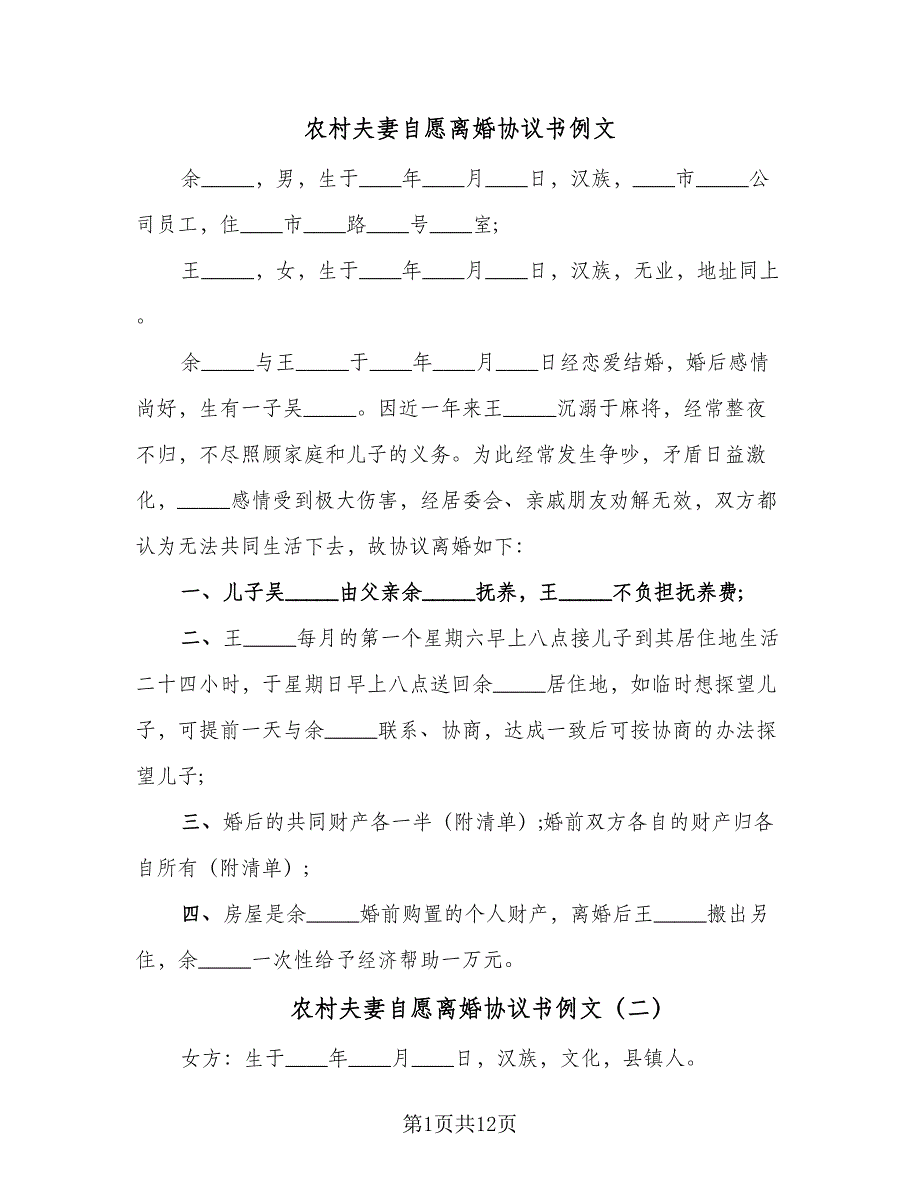 农村夫妻自愿离婚协议书例文
余_____，男，生于____年____月____日，汉族，____市_____公
司员工，住____市____路____号____室;
王_____，女，生于____年____月____日，汉族，无业，地址同上
。
余_____与王_____于____年____月____日经恋爱结婚，婚后感情
尚好，生有一子吴_____。因近一年来王_____沉溺于麻将，经常整夜
不归，不尽照顾家庭和儿子的义务。为此经常发生争吵，矛盾日益激
化，_____感情受到极大伤害，经居委会、亲戚朋友劝解无效，双方都
认为无法共同生活下去，故协议离婚如下：
一、儿子吴_____由父亲余_____抚养，王_____不负担抚养费;
二、王_____每月的第一个星期六早上八点接儿子到其居住地生活
二十四小时，于星期日早上八点送回余_____居住地，如临时想探望儿
子，可提前一天与余_____联系、协商，达成一致后可按协商的办法探
望儿子;
三、婚后的共同财产各一半（附清单）;婚前双方各自的财产归各
自所有（附清单）;
四、房屋是余_____婚前购置的个人财产，离婚后王_____搬出另
住，余_____一次性给予经济帮助一万元。
农村夫妻自愿离婚协议书例文（二）
女方：生于____年____月____日，汉族，文化，县镇人。
第1页共12页